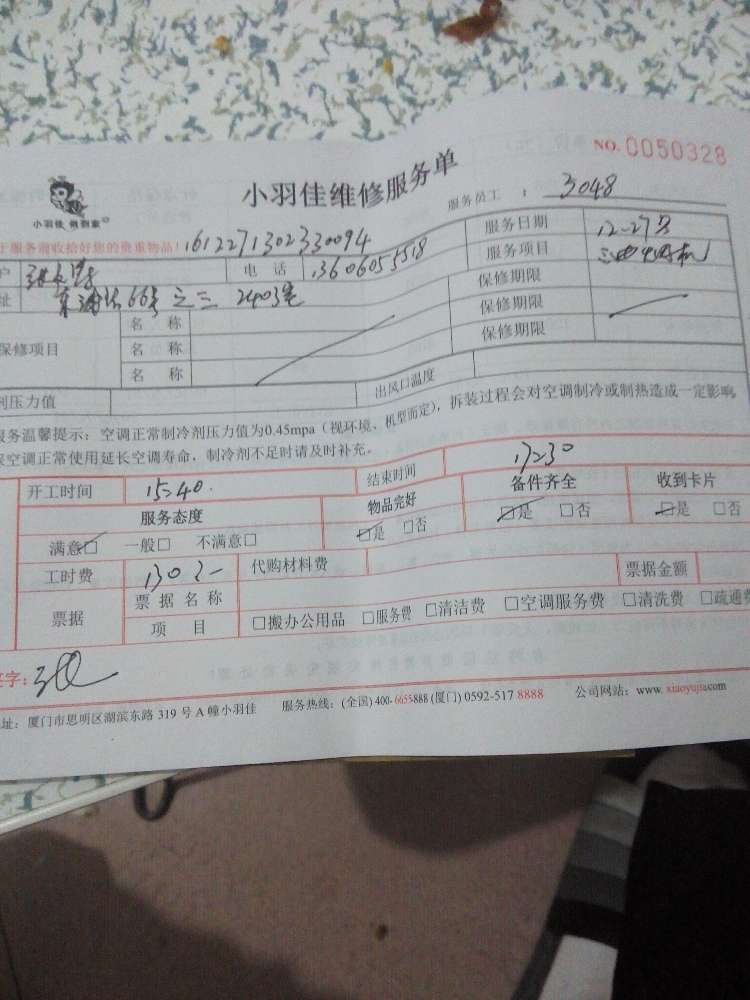 NO.0050328
小羽佳维修服务单
小羽佳 俺到家
服务员工 : 3048
服务前请收给好您的贵重物品! 1612271302330094
服务日期 12-27号
户 电 话 13606055518
服务项目
址 66号之三 2403室
保修期限
保修项目
名 称 保修期限
名 称 保修期限
名 称
剂压力值 出风口温度
服务温馨提示：空调正常制冷剂压力值为0.45mpa（视环境、机型而定），拆装过程会对空调制冷或制热造成一定影响
保空调正常使用延长空调寿命，制冷剂不足时请及时补充。
开工时间 15:40. 结束时间 17:30
服务态度 物品完好 备件齐全 收到卡片
满意☑ 一般□ 不满意□ ☑是 □否 ☑是 □否 ☑是 □否
工时费 130元 代购材料费 票据金额
票据
票 据 名 称
项 目 □搬办公用品 □服务费 □清洁费 □空调服务费 □清洗费 □疏通费
签字:
址：厦门市思明区湖滨东路 319 号 A 幢小羽佳 服务热线：(全国) 400-6655888 (厦门) 0592-517 8888 公司网站：www. xiaoyujia.com